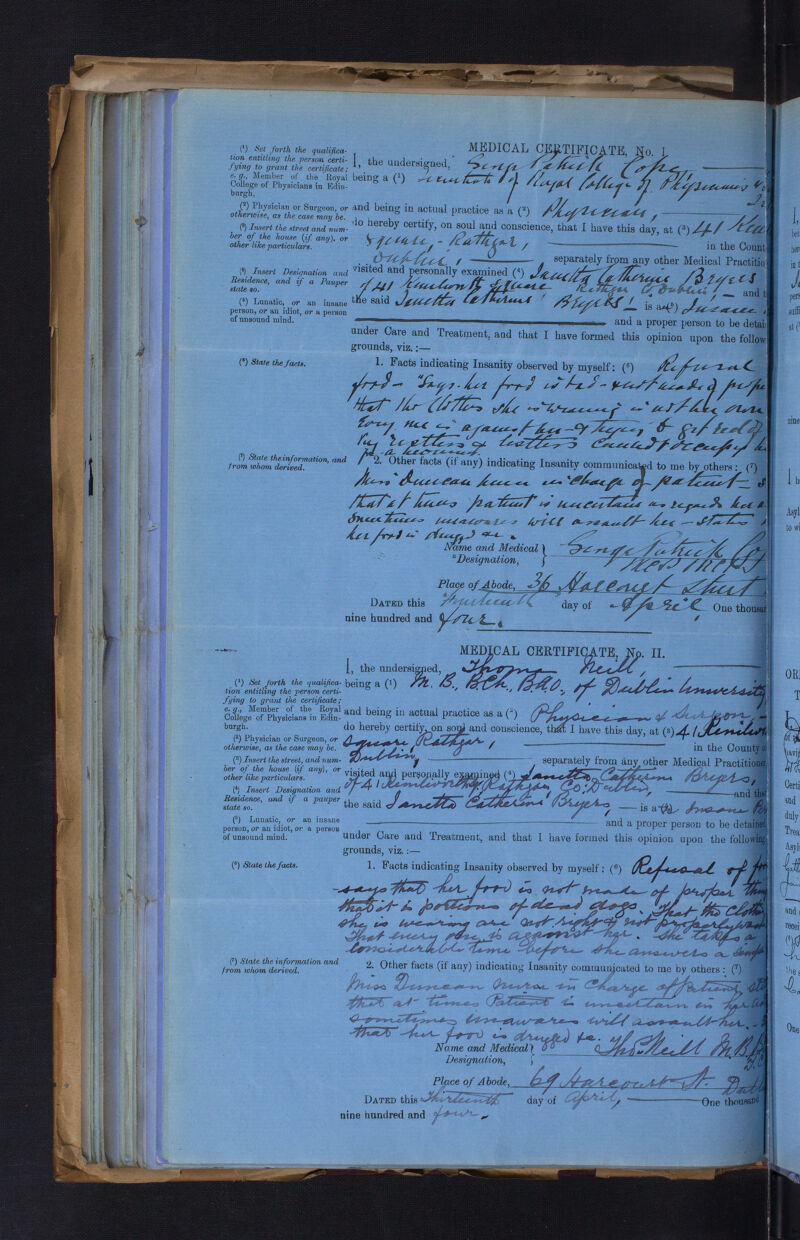 MEDICAL CERTIFICATE, No. I
(1) Set forth the qualifica-
tion entitling the person certi-
fying to grant the certificate;
e. g., Member of the Royal
College of Physicians in Edin-
burgh.
I, the undersigned, George Patrick Cope,
being a (1) member of Royal College of Physicians
(2) Physician or Surgeon, or
otherwise, as the case may be.
and being in actual practice as a (2) Physician,
(3) Insert the street and num-
ber of the house (if any), or
other like particulars.
do hereby certify, on soul and conscience, that I have this day, at (3) 41
Square, - Rathgar, in the Count
Dublin, separately from any other Medical Practitio
(4) Insert Designation and
Residence, and if a Pauper
state so.
visited and personally examined (4) Janetta Catherine Bryers
of 41 Kenilworth Square Rathgar Co. Dublin, and
(5) Lunatic, or an insane
person, or an idiot, or a person
of unsound mind.
the said Janetta Catherine Bryers is a (5) Insane
and a proper person to be detai
under Care and Treatment, and that I have formed this opinion upon the follow
grounds, viz.:—
(6) State the facts.
1. Facts indicating Insanity observed by myself: (6) Refusal
food - "Says her food is bad - & not made of
that the clothes she is wearing is not her own
one is against her
(7) State the information, and
from whom derived.
2. Other facts (if any) indicating Insanity communicated to me by others: (7)
Miss Duncan nurse in charge of patient
that at times patient is uncertain as regards her
Sometimes unawares will assault her - States
her food is drugged &c.
Name and Medical
Designation,
George Patrick
Place of Abode, 36 Harcourt Street
DATED this Fourteenth day of April One thousan
nine hundred and four.
MEDICAL CERTIFICATE, No. II.
I, the undersigned, Thomas Neill,
(1) Set forth the qualifica-
tion entitling the person certi-
fying to grant the certificate;
e. g., Member of the Royal
College of Physicians in Edin-
burgh.
being a (1) M. B., B.Ch., B.A.O., of Dublin University
and being in actual practice as a (2) Physician & Surgeon,
(2) Physician or Surgeon, or
otherwise, as the case may be.
do hereby certify, on soul and conscience, that I have this day, at (3) 41 Kenilwo
(3) Insert the street, and num-
ber of the house (if any), or
other like particulars.
Square, Rathgar, in the County
Dublin, separately from any other Medical Practitione
(4) Insert Designation and
Residence, and if a pauper
state so.
visited and personally examined (4) Janetta Catherine Bryers,
of 41 Kenilworth Sq. Rathgar, Co: Dublin, and tha
(5) Lunatic, or an insane
person, or an idiot, or a person
of unsound mind.
the said Janetta Catherine Bryers, is a (5) Insane
and a proper person to be detained
under Care and Treatment, and that I have formed this opinion upon the following
grounds, viz.:—
(6) State the facts.
1. Facts indicating Insanity observed by myself: (6) Refusal of
says that her food is not made of proper
that it is portions of dead dogs. That the cloth
she is wearing are not right & not properly
That every one is against her. She takes a
considerable time before she answers a
(7) State the information and
from whom derived.
2. Other facts (if any) indicating Insanity communicated to me by others: (7)
Miss Duncan nurse in charge of Patient,
that at times Patient is uncertain in her
sometimes unawares will assault her.
that her food is drugged &c.
Name and Medical
Designation,
Thos. Neill M.B.
Place of Abode, 69 Harcourt St.
DATED this Thirteenth day of April, One thousand
nine hundred and four.